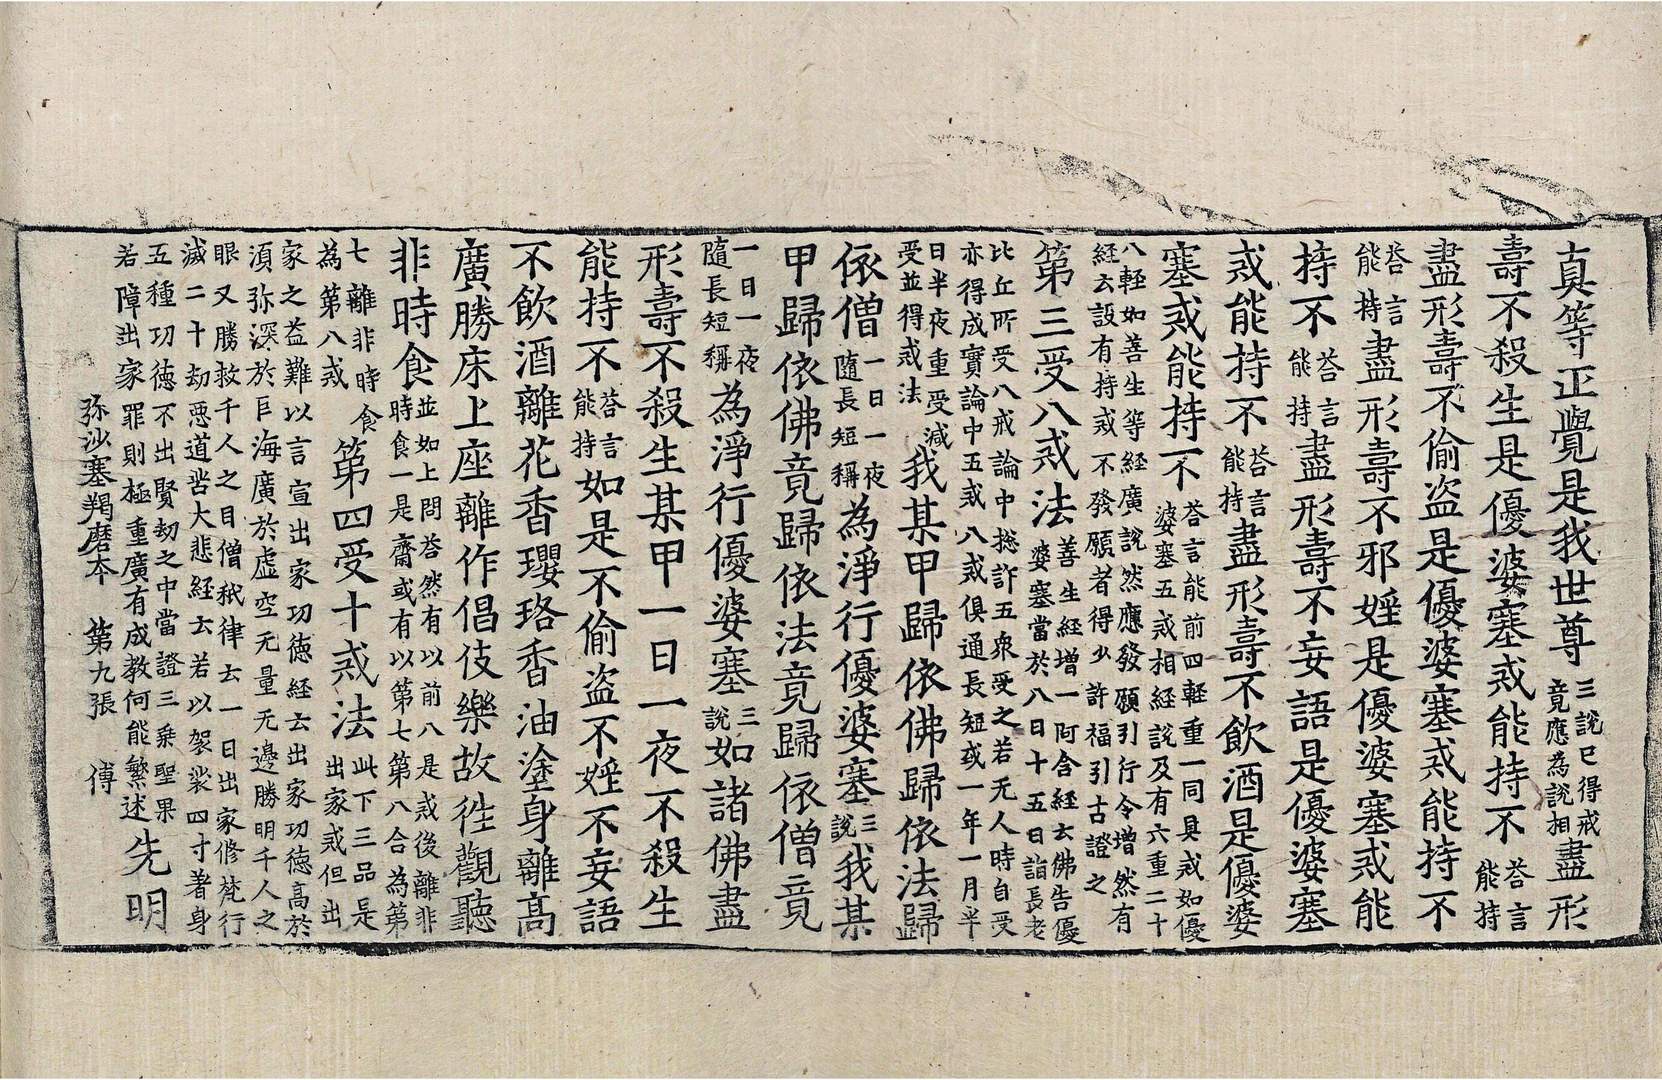 真等正覺是我世尊三說已得戒竟應為說相盡形
壽不殺生是優婆塞戒能持不荅言能持
盡形壽不偷盗是優婆塞戒能持不
荅言能持盡形壽不邪婬是優婆塞戒能
持不荅言能持盡形壽不妄語是優婆塞
戒能持不荅言能持盡形壽不飲酒是優婆
塞戒能持不荅言能前四輕重一同具戒如優婆塞五戒相經說及有六重二十
八輕如善生等經廣說然應發願引行令增然有經云設有持戒不發願者得少許福引古證之
第三受八戒法善生經增一阿含經云佛告優婆塞當於八日十五日詣長老
比丘所受八戒論中揔許五衆受之若无人時自受亦得成實論中五戒八戒俱通長短或一年一月半
日半夜重受減受並得戒法我某甲歸依佛歸依法歸
依僧一日一夜隨長短稱為淨行優婆塞三說我某
甲歸依佛竟歸依法竟歸依僧竟
一日一夜隨長短稱為淨行優婆塞三說如諸佛盡
形壽不殺生某甲一日一夜不殺生
能持不荅言能持如是不偷盗不婬不妄語
不飲酒離花香瓔珞香油塗身離高
廣勝床上座離作倡伎樂故往觀聽
非時食並如上問荅然有以前八是戒後離非時食一是齋或有以第七第八合為第
七離非時食為第八戒第四受十戒法此下三品是出家戒但出
家之益難以言宣出家功德經云出家功德高於湏弥深於巨海廣於虛空无量无邊勝明千人之
眼又勝救千人之目僧祇律云一日出家修梵行滅二十劫惡道苦大悲經云若以袈裟四寸著身
五種功德不出賢劫之中當證三乘聖果若障出家罪則極重廣有成教何能繁述先明
弥沙塞羯磨本 第九張 傅